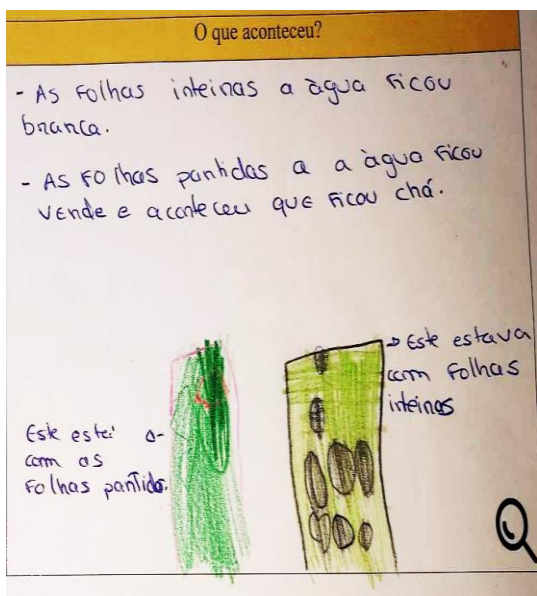 O que aconteceu?
- As folhas inteiras a àgua ficou
branca.
- As folhas partidas a a àgua ficou
verde e aconteceu que ficou chá.
→ Este estava
com folhas
inteiras
Este estei a-
com as
folhas partida.